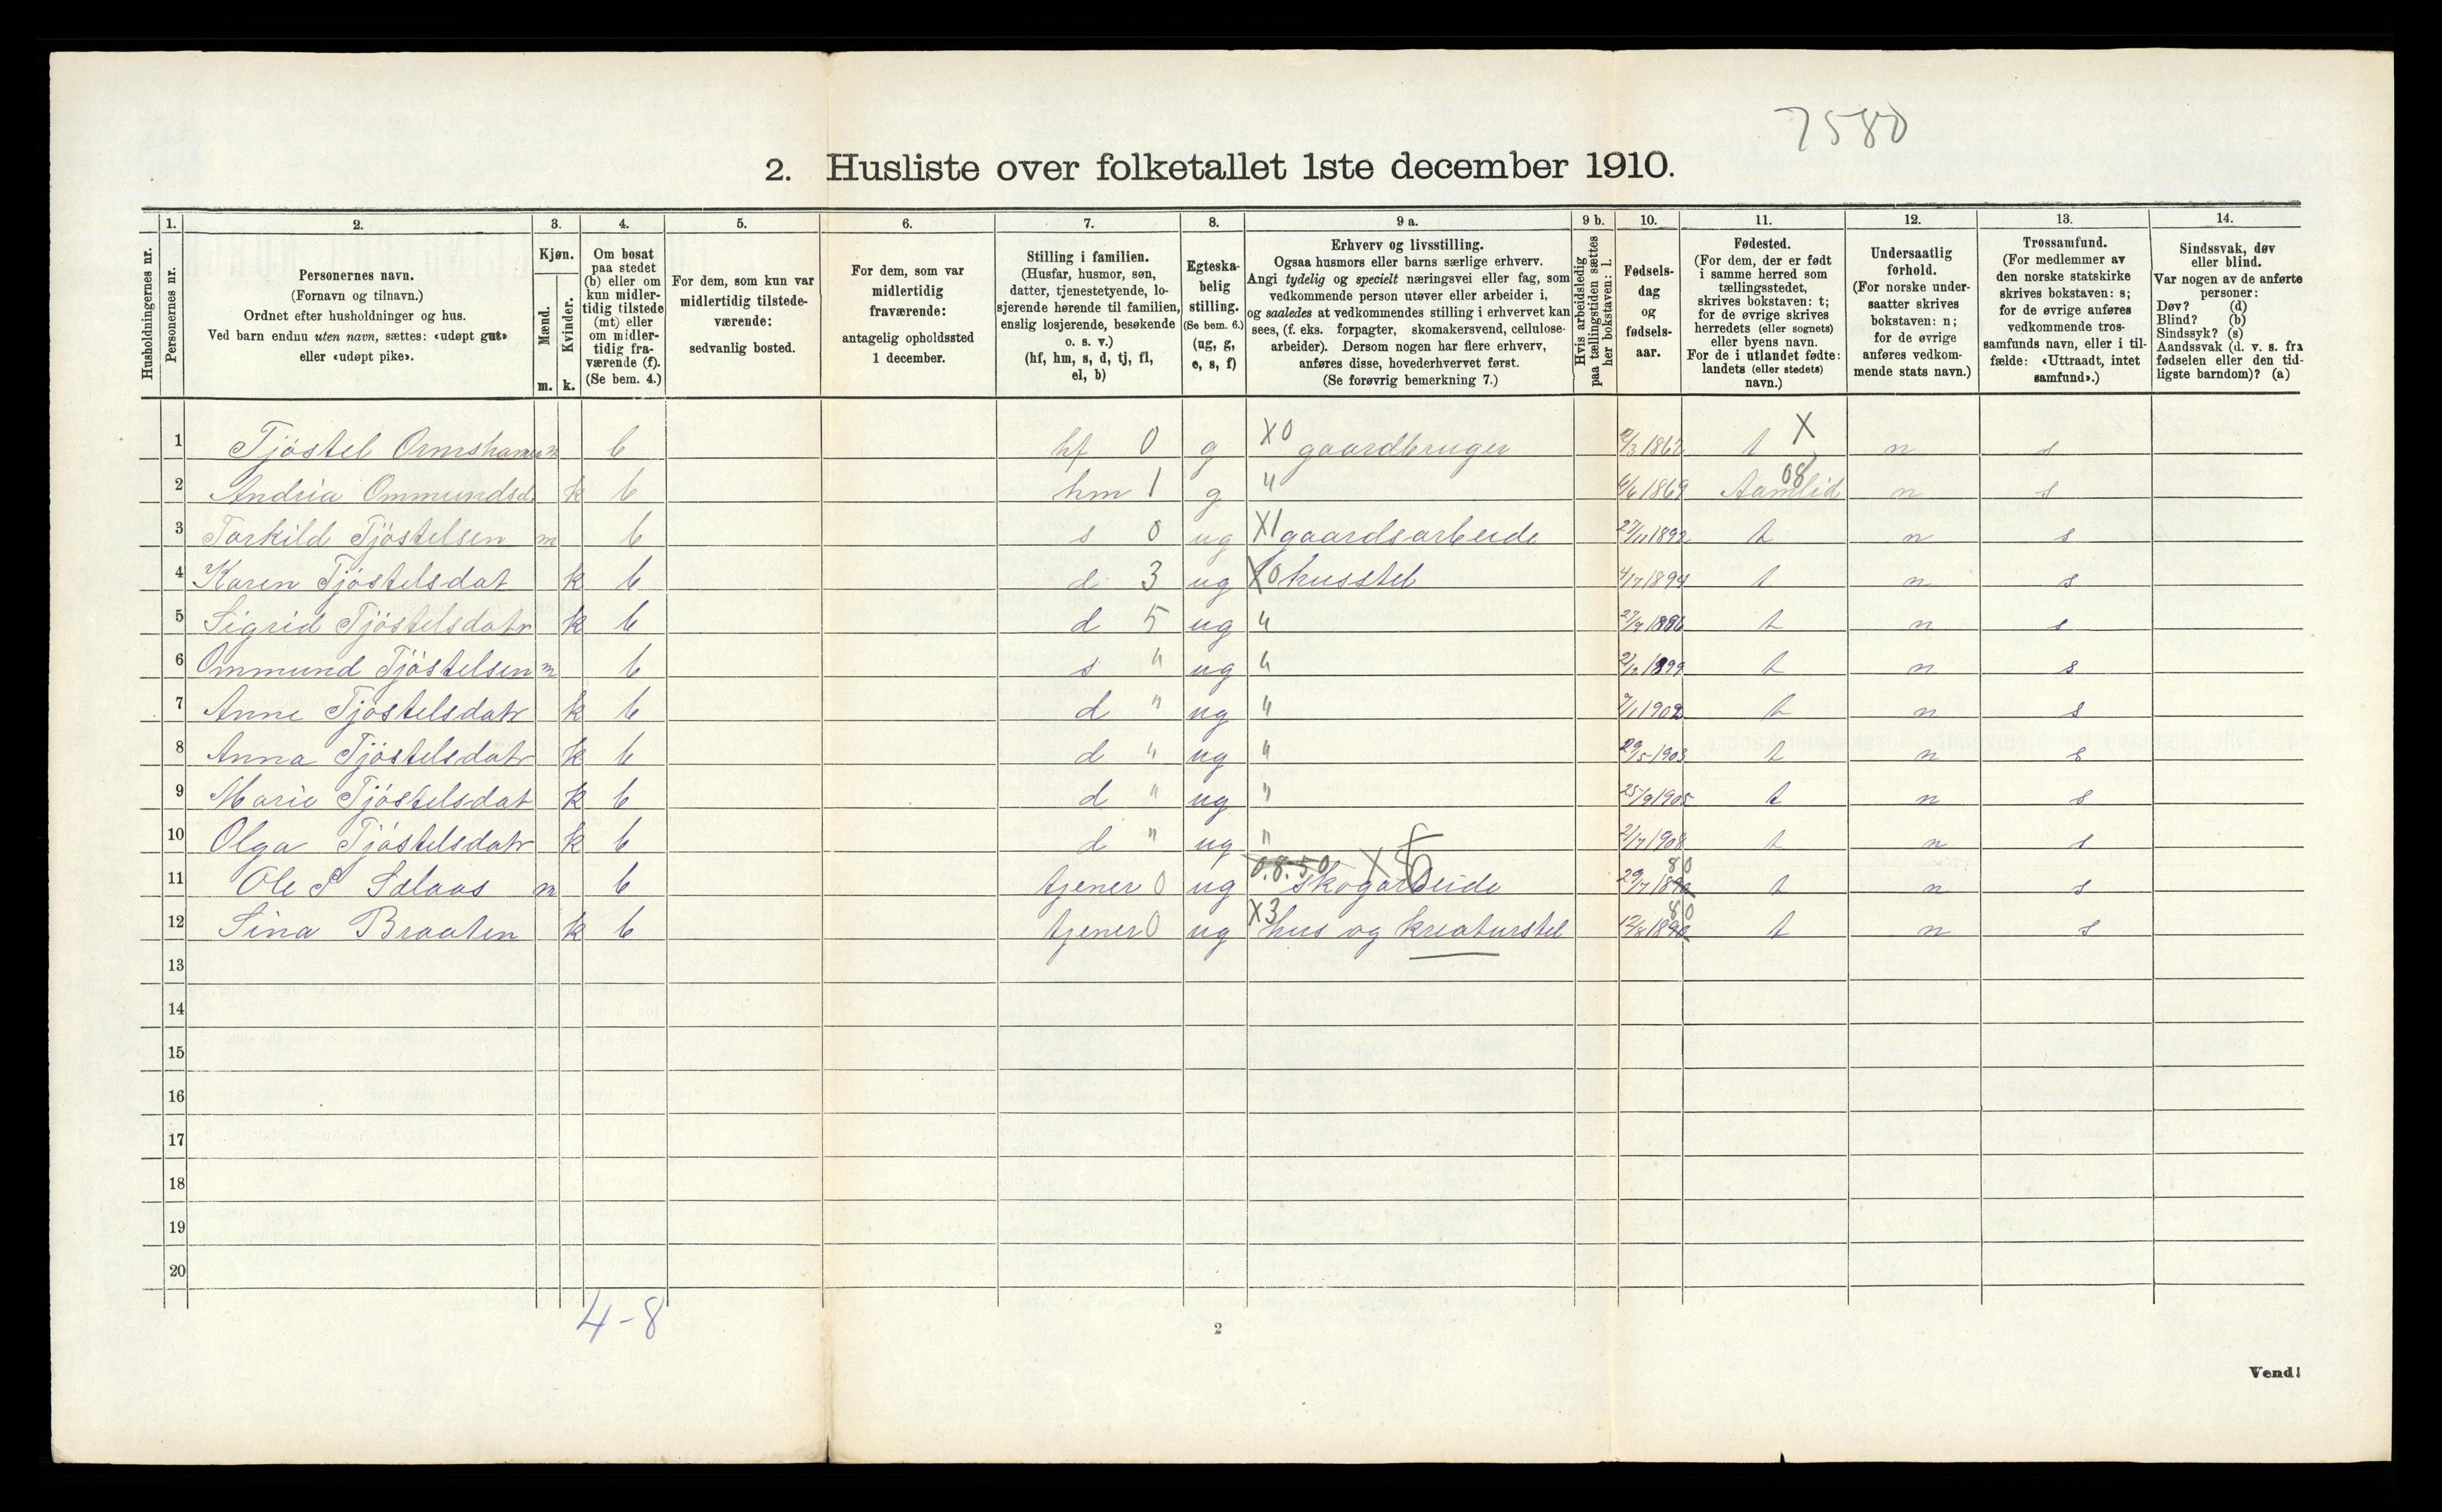 7580
2. Husliste over folketallet 1ste december 1910.
Husholdningernes nr.
1.
Personernes nr.
2.
Personernes navn.
(Fornavn og tilnavn.)
Ordnet efter husholdninger og hus.
Ved barn endnu uten navn, sættes: «udøpt gut»
eller «udøpt pike».
3.
Kjøn.
Mænd.
m.
Kvinder.
k.
4.
Om bosat
paa stedet
(b) eller om
kun midler-
tidig tilstede
(mt) eller
om midler-
tidig fra-
værende (f).
(Se bem. 4.)
5.
For dem, som kun var
midlertidig tilstede-
værende:
sedvanlig bosted.
6.
For dem, som var
midlertidig
fraværende:
antagelig opholdssted
1 december.
7.
Stilling i familien.
(Husfar, husmor, søn,
datter, tjenestetyende, lo-
sjerende hørende til familien,
enslig losjerende, besøkende
o. s. v.)
(hf, hm, s, d, tj, fl,
el, b)
8.
Egteska-
belig
stilling.
(Se bem. 6.)
(ug, g,
e, s, f)
9 a.
Erhverv og livsstilling.
Ogsaa husmors eller barns særlige erhverv.
Angi tydelig og specielt næringsvei eller fag, som
vedkommende person utøver eller arbeider i,
og saaledes at vedkommendes stilling i erhvervet kan
sees, (f. eks. forpagter, skomakersvend, cellulose-
arbeider). Dersom nogen har flere erhverv,
anføres disse, hovederhvervet først.
(Se forøvrig bemerkning 7.)
9 b.
Hvis arbeidsledig
paa tællingstiden sættes
her bokstaven: l.
10.
Fødsels-
dag
og
fødsels-
aar.
11.
Fødested.
(For dem, der er født
i samme herred som
tællingsstedet,
skrives bokstaven: t;
for de øvrige skrives
herredets (eller sognets)
eller byens navn.
For de i utlandet fødte:
landets (eller stedets)
navn.)
12.
Undersaatlig
forhold.
(For norske under-
saatter skrives
bokstaven: n;
for de øvrige
anføres vedkom-
mende stats navn.)
13.
Trossamfund.
(For medlemmer av
den norske statskirke
skrives bokstaven: s;
for de øvrige anføres
vedkommende tros-
samfunds navn, eller i til-
fælde: «Uttraadt, intet
samfund».)
14.
Sindssvak, døv
eller blind.
Var nogen av de anførte
personer:
Døv? (d)
Blind? (b)
Sindssyk? (s)
Aandssvak (d. v. s. fra
fødselen eller den tid-
ligste barndom)? (a)
1 Tjöstel m b hf 0 g X0 gaardbruger t X n s
2 Andria Ommundsd k b hm 1 g " 4/6 1869 Aamlid 08 n s
3 Torkild Tjöstelsen m b s 0 ug X1 gaardsarbeide 27/11 1892 t n s
4 Karen Tjöstelsdat k b d 3 ug X0 husstel 4/7 1894 t n s
5 Sigrid Tjöstelsdatr k b d 5 ug " t n s
6 Ommund Tjöstelsen m b s " ug " 1899 t n s
7 Anne Tjöstelsdatr k b d " ug " t n s
8 Anna Tjöstelsdatr k b d " ug " 29/5 1903 t n s
9 Marie Tjöstelsdat k b d " ug " 25/9 1905 t n s
10 Olga Tjöstelsdatr k b d " ug " 2/7 1908 t n s
11 Ole S Selaas m b tjener 0 ug 0.8.50 X 5 skogarbeide 29/7 80 t n s
12 Sina Braaten k b tjener 0 ug X3 hus og kreaturstel 12/8 1890 80 t n s
13
14
15
16
17
18
19
20
4-8
2
Vend!